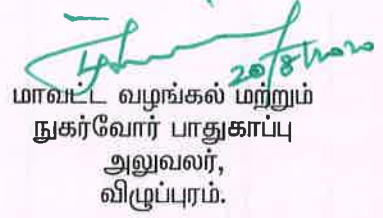 20/8/2020
மாவட்ட வழங்கல் மற்றும்
நுகர்வோர் பாதுகாப்பு
அலுவலர்,
விழுப்புரம்.